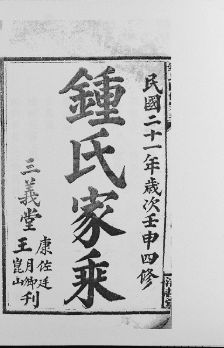 民國二十一年歲次壬申四修
鍾氏家乘
三義堂
康佐廷
王月卿刊
崑山